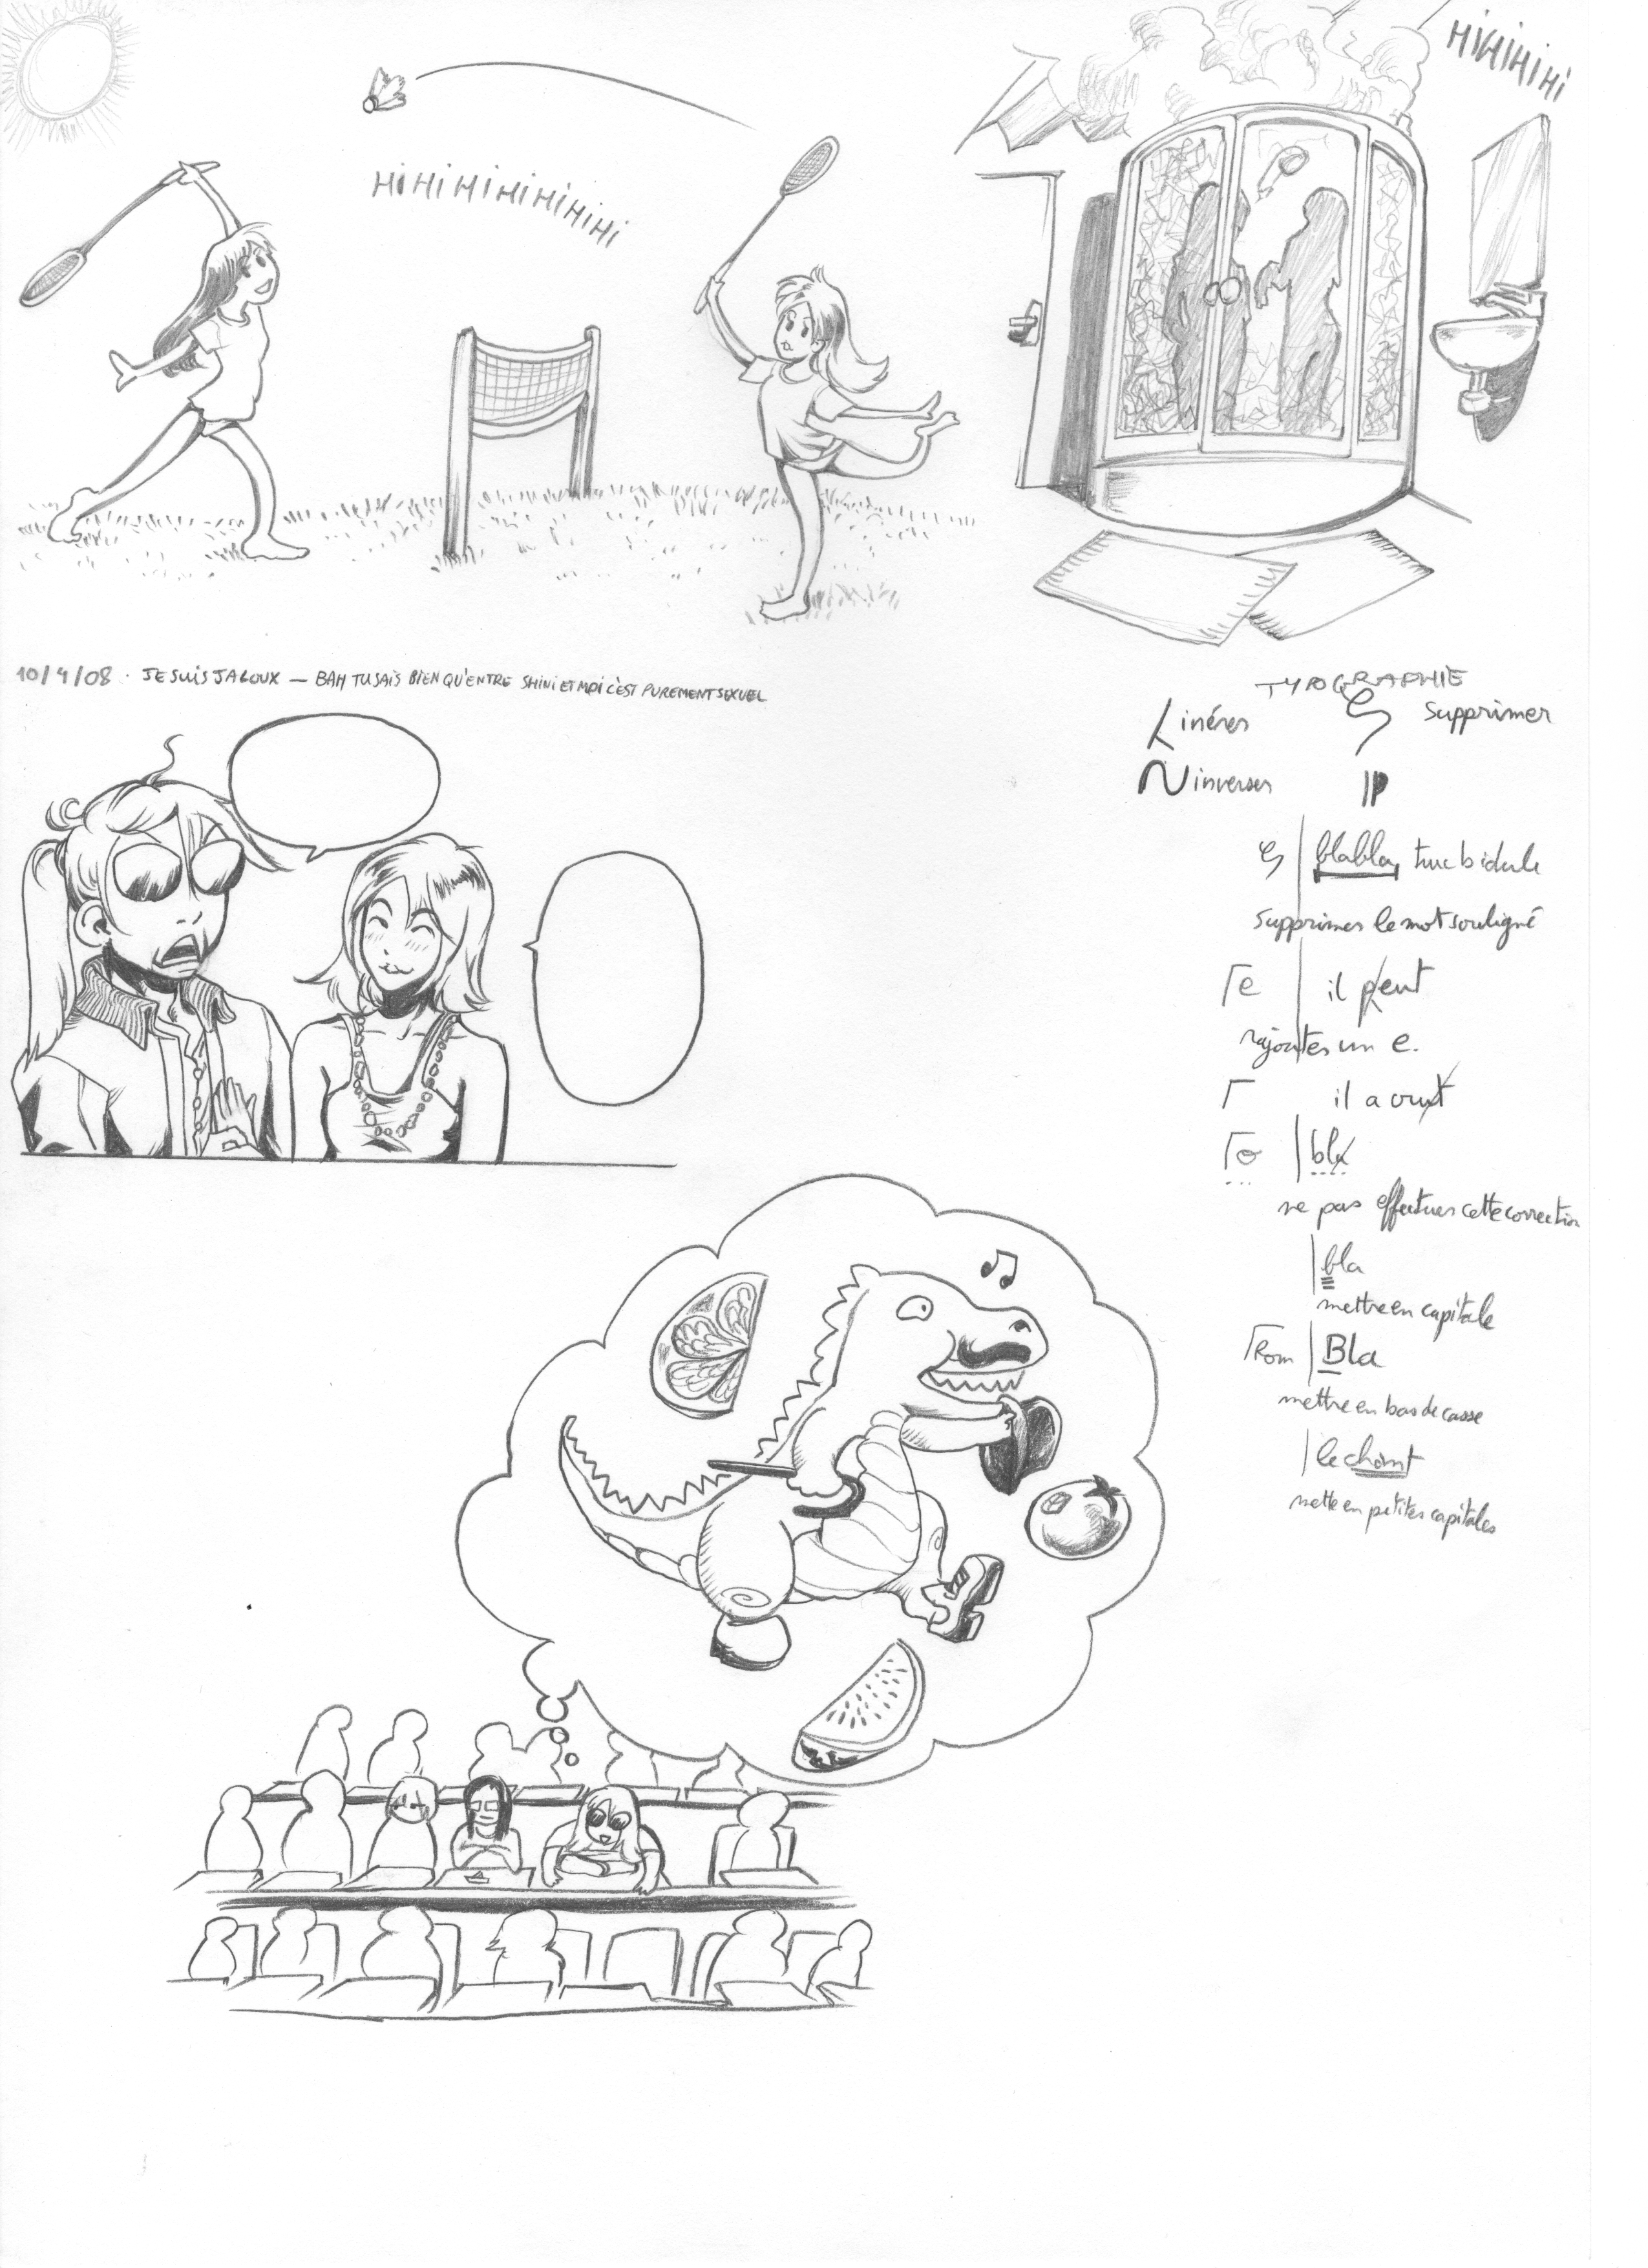 HiHiHiHiHi
HiHi HiHiHiHiHiHi
10/4/08 · JE SUIS JALOUX — BAH TU SAIS BIEN QU'ENTRE SHINI ET MOI C'EST PUREMENT SEXUEL
TYPOGRAPHIE
inérer supprimer
inverser
blabla, truc bidule
supprimer le mot souligné
e il peut
rajouter un e.
il a
o bla
ne pas effectuer cette correction
bla
mettre en capitale
Rom Bla
mettre en bas de casse
le chant
mettre en petites capitales